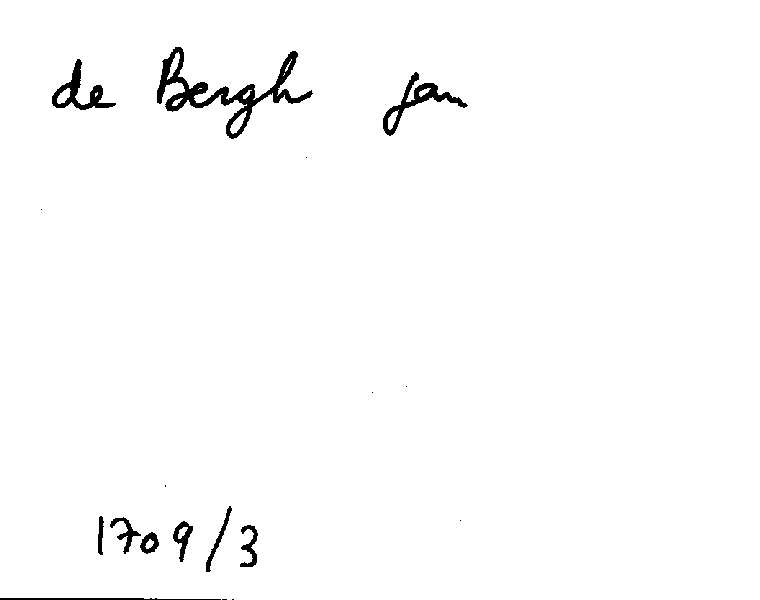 de Bergh jan
1709/3